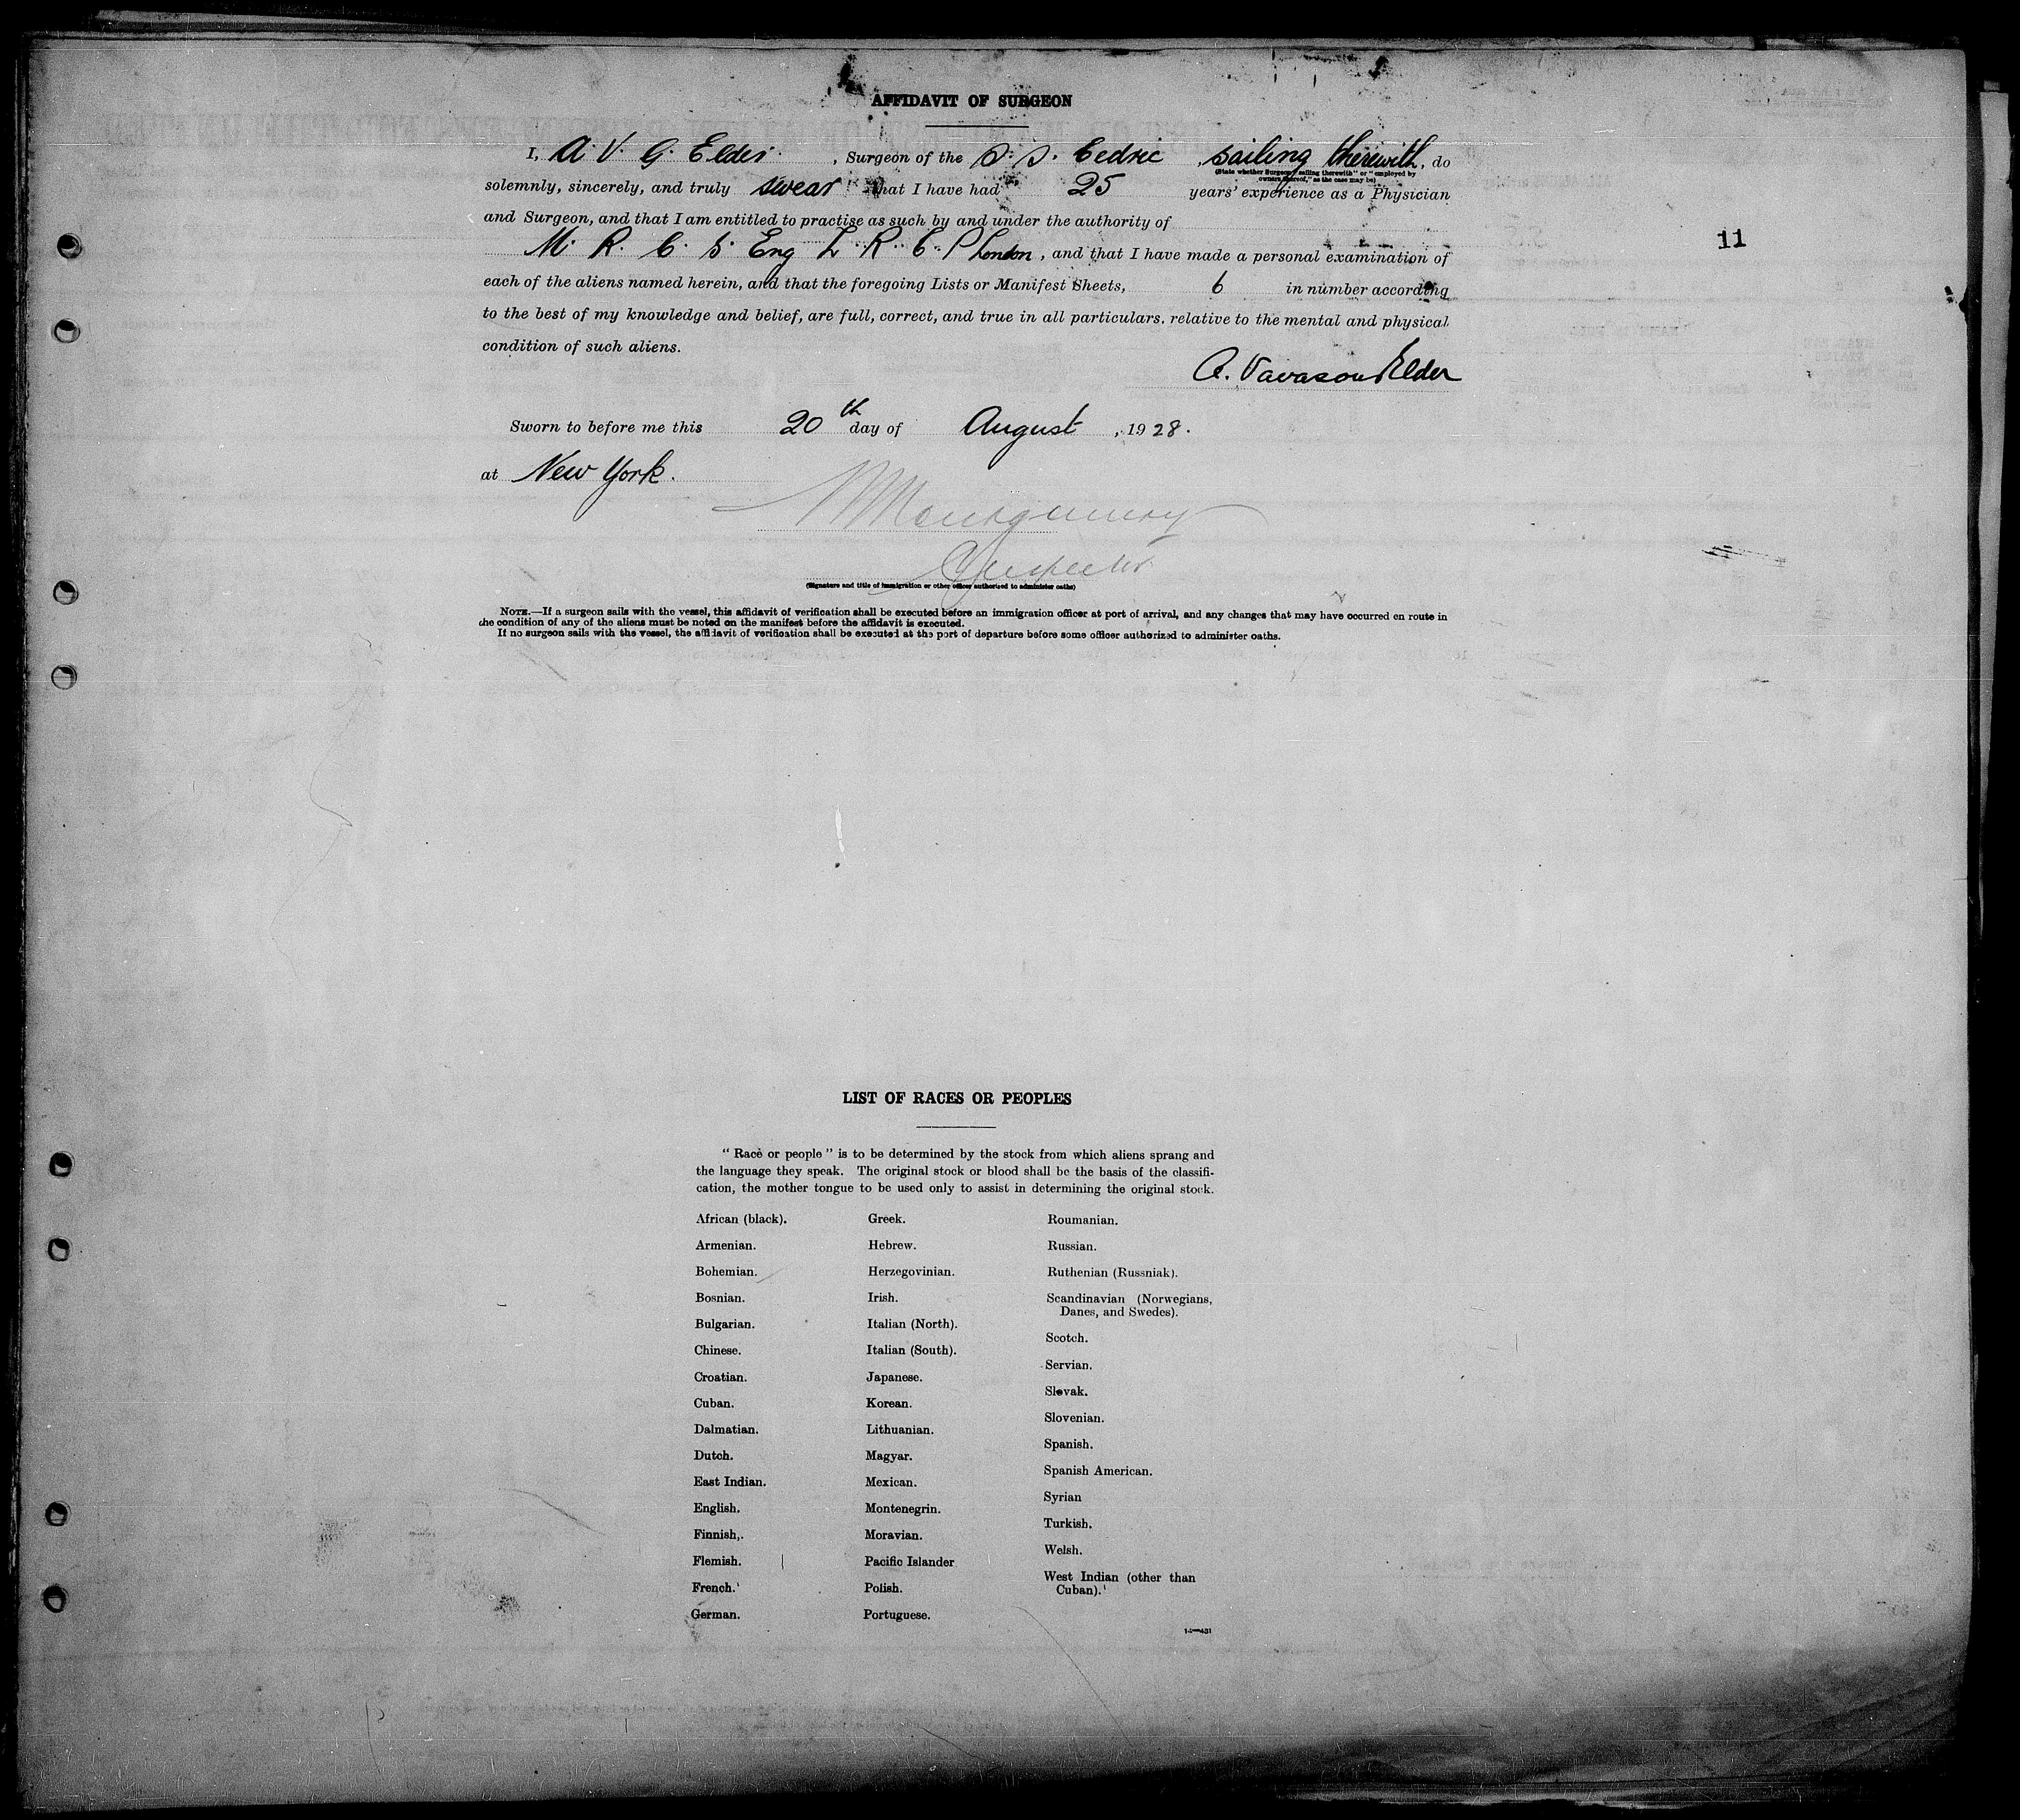 AFFIDAVIT OF SURGEON
I, A. V. G. Elder. , Surgeon of the S. S. Cedric , sailing therewith, do
(State whether Surgeon "sailing therewith" or "employed by
owners thereof," as the case may be)
solemnly, sincerely, and truly swear that I have had 25 years' experience as a Physician
and Surgeon, and that I am entitled to practise as such by and under the authority of
M. R. C. S. Eng L. R. C. P London, and that I have made a personal examination of
11
each of the aliens named herein, and that the foregoing Lists or Manifest Sheets, 6 in number according
to the best of my knowledge and belief, are full, correct, and true in all particulars. relative to the mental and physical
condition of such aliens.
A. Vavasour Elder
Sworn to before me this 20th day of August , 1928.
at New York.
Montgomery
Inspector
(Signature and title of immigration or other officer authorized to administer oaths)
NOTE.—If a surgeon sails with the vessel, this affidavit of verification shall be executed before an immigration officer at port of arrival, and any changes that may have occurred en route in
the condition of any of the aliens must be noted on the manifest before the affidavit is executed.
If no surgeon sails with the vessel, the affidavit of verification shall be executed at the port of departure before some officer authorized to administer oaths.
LIST OF RACES OR PEOPLES
" Race or people " is to be determined by the stock from which aliens sprang and
the language they speak. The original stock or blood shall be the basis of the classifi-
cation, the mother tongue to be used only to assist in determining the original stock.
African (black).
Armenian.
Bohemian.
Bosnian.
Bulgarian.
Chinese.
Croatian.
Cuban.
Dalmatian.
Dutch.
East Indian.
English.
Finnish,.
Flemish.
French.
German.
Greek.
Hebrew.
Herzegovinian.
Irish.
Italian (North).
Italian (South).
Japanese.
Korean.
Lithuanian.
Magyar.
Mexican.
Montenegrin.
Moravian.
Pacific Islander
Polish.
Portuguese.
Roumanian.
Russian.
Ruthenian (Russniak).
Scandinavian (Norwegians,
Danes, and Swedes).
Scotch.
Servian.
Slovak.
Slovenian.
Spanish.
Spanish American.
Syrian
Turkish.
Welsh.
West Indian (other than
Cuban).